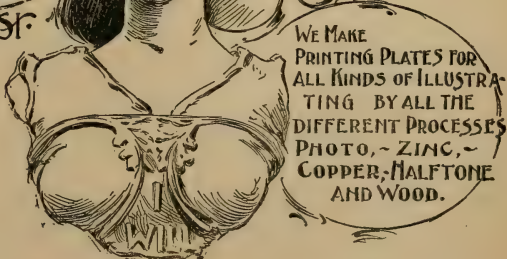 ST.
WE MAKE
PRINTING PLATES FOR
ALL KINDS OF ILLUSTRA-
TING BY ALL THE
DIFFERENT PROCESSES
PHOTO,~ ZINC,~
COPPER,-HALFTONE
AND WOOD.
I
WILL